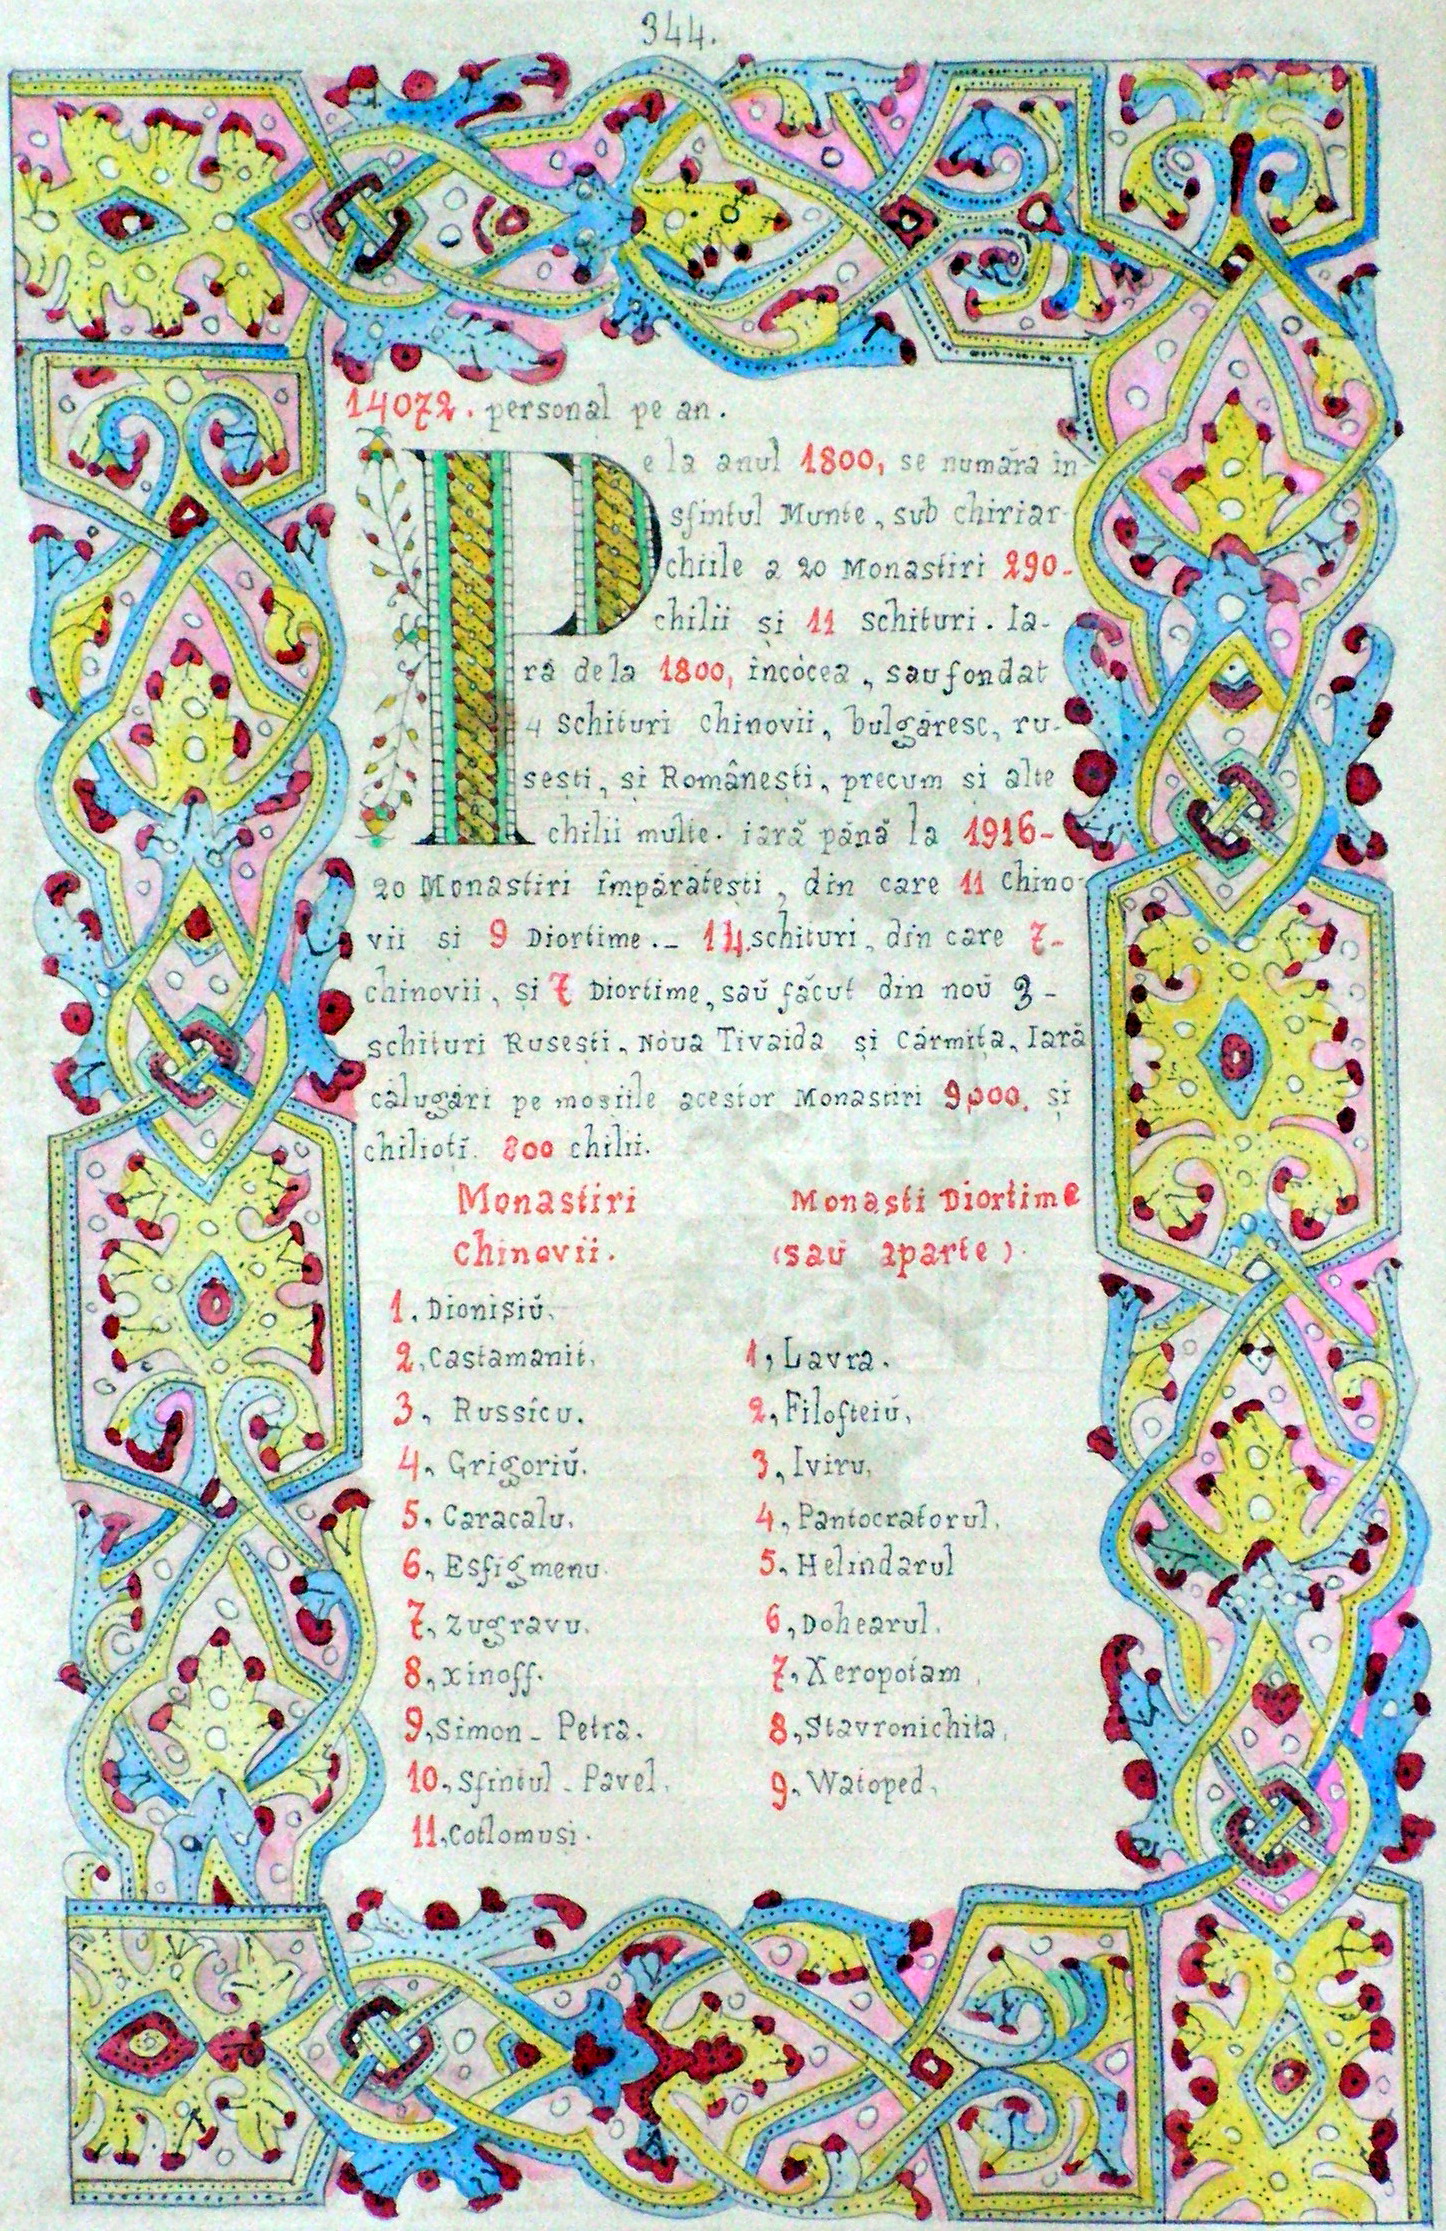 344.
14072. personal pe an.
Pe la anul 1800, se numără în-
sfintul Munte, sub chiriar-
chiile a 20 Monastiri 290-
chilii și 11 schituri. Ia-
ră dela 1800, încócea, saufondat
4 schituri chinovii, bulgăresc, ru-
sești, și Românești, precum și alte
chilii multe. iară pănă la 1916-
20 Monastiri împărătești, din care 11 chino-
vii si 9 Diortime.- 14.schituri, din care 7-
chinovii, și 7 Diortime, saŭ făcut din noŭ 3-
schituri Rusești, Nòua Tivaida și Cármița, Iară
călugări pe mosiile acestor Monastiri 9,000, și
chilioti. 800 chilii.
Monastiri Monasti Diortime
Chinovii. (saŭ aparte).
1, Dionisiŭ,
2, Castamanit, 1, Lavra.
3, Russicu. 2, Filofteiŭ,
4, Grigoriŭ. 3, Iviru,
5, Caracalu, 4, Pantocratorul,
6, Esfigmenu. 5, Helindarul
7, Zugravu, 6, Dohearul,
8, xinoff. 7, Xeropotam,
9, Simon-Petra. 8, Stavronichita,
10, Sfintul-Pavel, 9, Watoped,
11, Cotlomusi.